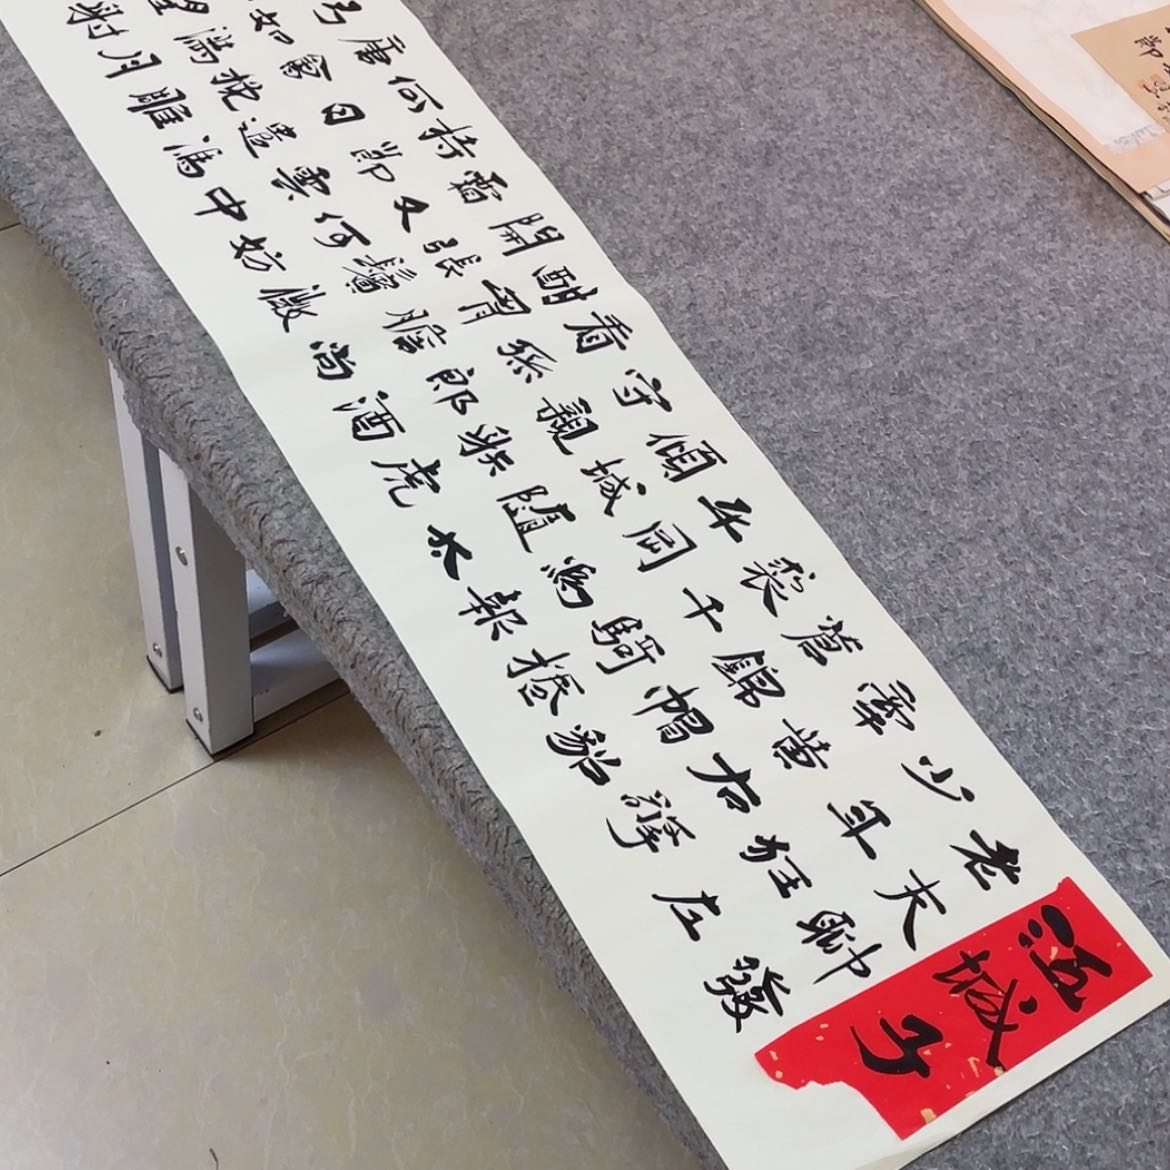 江城子
老夫聊發
少年狂左
牽黃右擎
蒼錦帽貂
裘千騎捲
平岡為報
傾城隨太
守親射虎
看孫郎酒
酣胸膽尚
開張鬢微
霜又何妨
持節雲中
何日遣馮
唐會挽雕
弓如滿月
望射